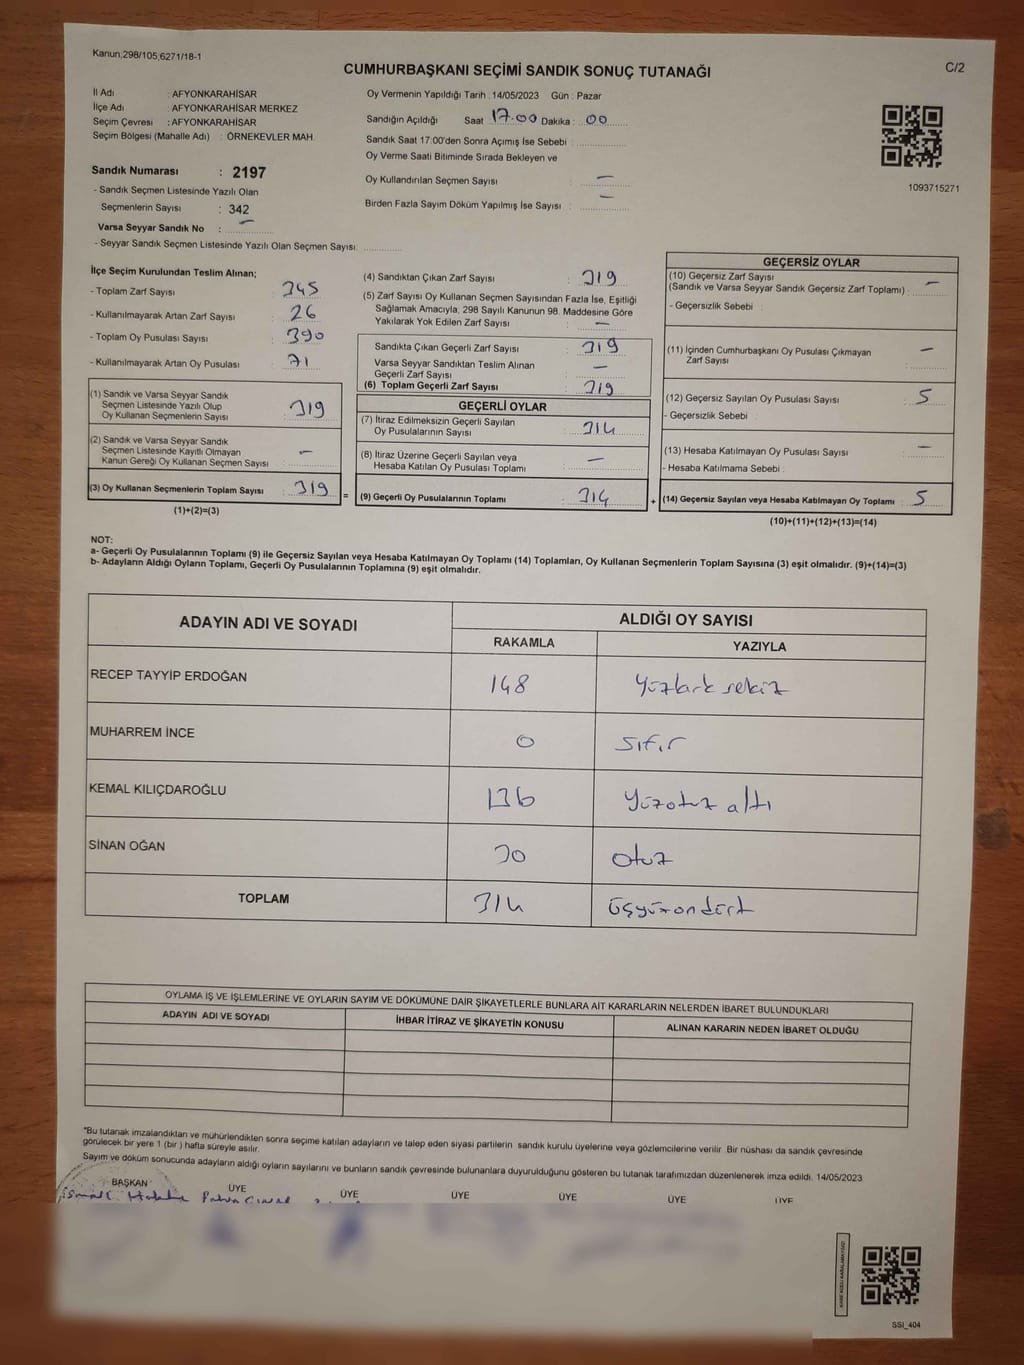 Kanun;298/105;6271/18-1
C/2
CUMHURBAŞKANI SEÇİMİ SANDIK SONUÇ TUTANAĞI
İl Adı : AFYONKARAHİSAR
İlçe Adı : AFYONKARAHİSAR MERKEZ
Seçim Çevresi : AFYONKARAHİSAR
Seçim Bölgesi (Mahalle Adı) : ÖRNEKEVLER MAH.
Sandık Numarası : 2197
- Sandık Seçmen Listesinde Yazılı Olan
Seçmenlerin Sayısı : 342
Varsa Seyyar Sandık No : –
- Seyyar Sandık Seçmen Listesinde Yazılı Olan Seçmen Sayısı:
Oy Vermenin Yapıldığı Tarih : 14/05/2023 Gün : Pazar
Sandığın Açıldığı Saat 17.00 Dakika : 00
Sandık Saat 17:00'den Sonra Açımış İse Sebebi :
Oy Verme Saati Bitiminde Sırada Bekleyen ve
Oy Kullandırılan Seçmen Sayısı : –
Birden Fazla Sayım Döküm Yapılmış İse Sayısı : –
1093715271
İlçe Seçim Kurulundan Teslim Alınan;
- Toplam Zarf Sayısı : 345
- Kullanılmayarak Artan Zarf Sayısı : 26
- Toplam Oy Pusulası Sayısı : 390
- Kullanılmayarak Artan Oy Pusulası : 71
(1) Sandık ve Varsa Seyyar Sandık
Seçmen Listesinde Yazılı Olup
Oy Kullanan Seçmenlerin Sayısı : 319
(2) Sandık ve Varsa Seyyar Sandık
Seçmen Listesinde Kayıtlı Olmayan
Kanun Gereği Oy Kullanan Seçmen Sayısı : –
(3) Oy Kullanan Seçmenlerin Toplam Sayısı : 319
(1)+(2)=(3)
(4) Sandıktan Çıkan Zarf Sayısı : 319
(5) Zarf Sayısı Oy Kullanan Seçmen Sayısından Fazla İse, Eşitliği
Sağlamak Amacıyla, 298 Sayılı Kanunun 98. Maddesine Göre
Yakılarak Yok Edilen Zarf Sayısı : –
Sandıkta Çıkan Geçerli Zarf Sayısı : 319
Varsa Seyyar Sandıktan Teslim Alınan
Geçerli Zarf Sayısı : –
(6) Toplam Geçerli Zarf Sayısı : 319
GEÇERLİ OYLAR
(7) İtiraz Edilmeksizin Geçerli Sayılan
Oy Pusulalarının Sayısı : 314
(8) İtiraz Üzerine Geçerli Sayılan veya
Hesaba Katılan Oy Pusulası Toplamı : –
= (9) Geçerli Oy Pusulalarının Toplamı : 314
GEÇERSİZ OYLAR
(10) Geçersiz Zarf Sayısı
(Sandık ve Varsa Seyyar Sandık Geçersiz Zarf Toplamı) : –
- Geçersizlik Sebebi :
(11) İçinden Cumhurbaşkanı Oy Pusulası Çıkmayan
Zarf Sayısı : –
(12) Geçersiz Sayılan Oy Pusulası Sayısı : 5
- Geçersizlik Sebebi :
(13) Hesaba Katılmayan Oy Pusulası Sayısı : –
- Hesaba Katılmama Sebebi :
+ (14) Geçersiz Sayılan veya Hesaba Katılmayan Oy Toplamı : 5
(10)+(11)+(12)+(13)=(14)
NOT:
a- Geçerli Oy Pusulalarının Toplamı (9) ile Geçersiz Sayılan veya Hesaba Katılmayan Oy Toplamı (14) Toplamları, Oy Kullanan Seçmenlerin Toplam Sayısına (3) eşit olmalıdır. (9)+(14)=(3)
b- Adayların Aldığı Oyların Toplamı, Geçerli Oy Pusulalarının Toplamına (9) eşit olmalıdır.
ADAYIN ADI VE SOYADI
ALDIĞI OY SAYISI
RAKAMLA YAZIYLA
RECEP TAYYİP ERDOĞAN 148 Yüzkırk sekiz
MUHARREM İNCE 0 Sıfır
KEMAL KILIÇDAROĞLU 136 Yüzotuz altı
SİNAN OĞAN 30 Otuz
TOPLAM 314 Üçyüzondört
OYLAMA İŞ VE İŞLEMLERİNE VE OYLARIN SAYIM VE DÖKÜMÜNE DAİR ŞİKAYETLERLE BUNLARA AİT KARARLARIN NELERDEN İBARET BULUNDUKLARI
ADAYIN ADI VE SOYADI İHBAR İTİRAZ VE ŞİKAYETİN KONUSU ALINAN KARARIN NEDEN İBARET OLDUĞU
*Bu tutanak imzalandıktan ve mühürlendikten sonra seçime katılan adayların ve talep eden siyasi partilerin sandık kurulu üyelerine veya gözlemcilerine verilir. Bir nüshası da sandık çevresinde
görülecek bir yere 1 (bir ) hafta süreyle asılır.
Sayım ve döküm sonucunda adayların aldığı oyların sayılarını ve bunların sandık çevresinde bulunanlara duyurulduğunu gösteren bu tutanak tarafımızdan düzenlenerek imza edildi. 14/05/2023
BAŞKAN ÜYE ÜYE ÜYE ÜYE ÜYE ÜYE
SSI_404